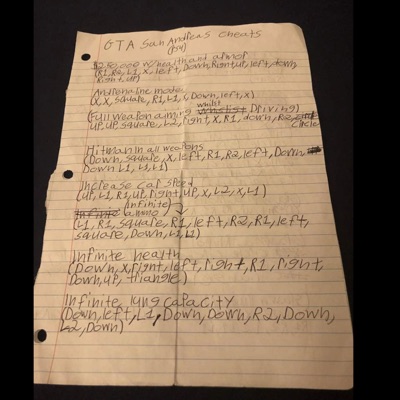 GTA San Andreas Cheats
$250,000 w/health and armor
(R1, R2, L1, X, left, Down, Right, up, left, down,
Right, up)
Adrenaline mode
X, X, square, R1, L1, X, Down, left, X)
Full weapon aiming whilst Driving)
up, up, square, L2, right, X, R1, down, R2, Circle
Hitman in all weapons
(Down, square, X, left, R1, R2, left, Down
Down L1, L1, L1)
Increase car speed
(UP, L1, R1, up, right, up, X, L2, X, L1)
Infinite ammo
(L1, R1, square, R1, left, R2, R1, left,
square, Down, L1, L1)
Infinite health
(Down, X, right, left, right, R1, right,
Down, up, triangle)
Infinite lung capacity
(Down, left, L1, Down, Down, R2, Down,
L2, Down)